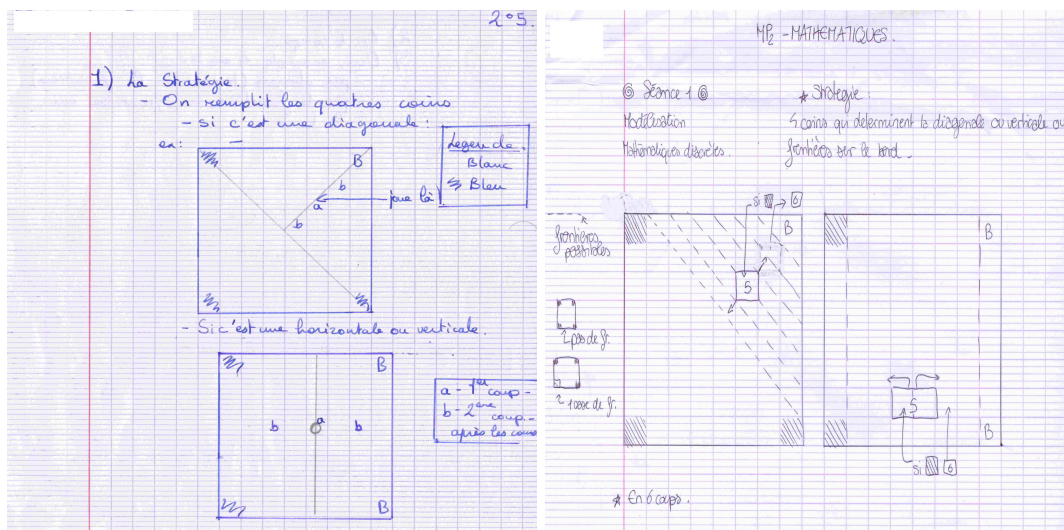 2°5.
1) La Stratégie.
- On remplit les quatres coins
- si c'est une diagonale :
ex :
Legende.
Blanc
Bleu
B
b
a
b
joue là
- Si c'est une horizontale ou verticale.
B
b
a
b
B
a - 1er coup -
b - 2ème coup. -
après les coins
MP2 - MATHEMATIQUES.
Séance 1
Modélisation
Mathématiques discrètes
* Stratégie :
4 coins qui déterminent la diagonale ou verticale ou
frontières sur le bord.
frontières
possibles
si
6
B
5
2 pas de fr.
2 1 case de fr.
B
5
B
si
6
* En 6 coups.